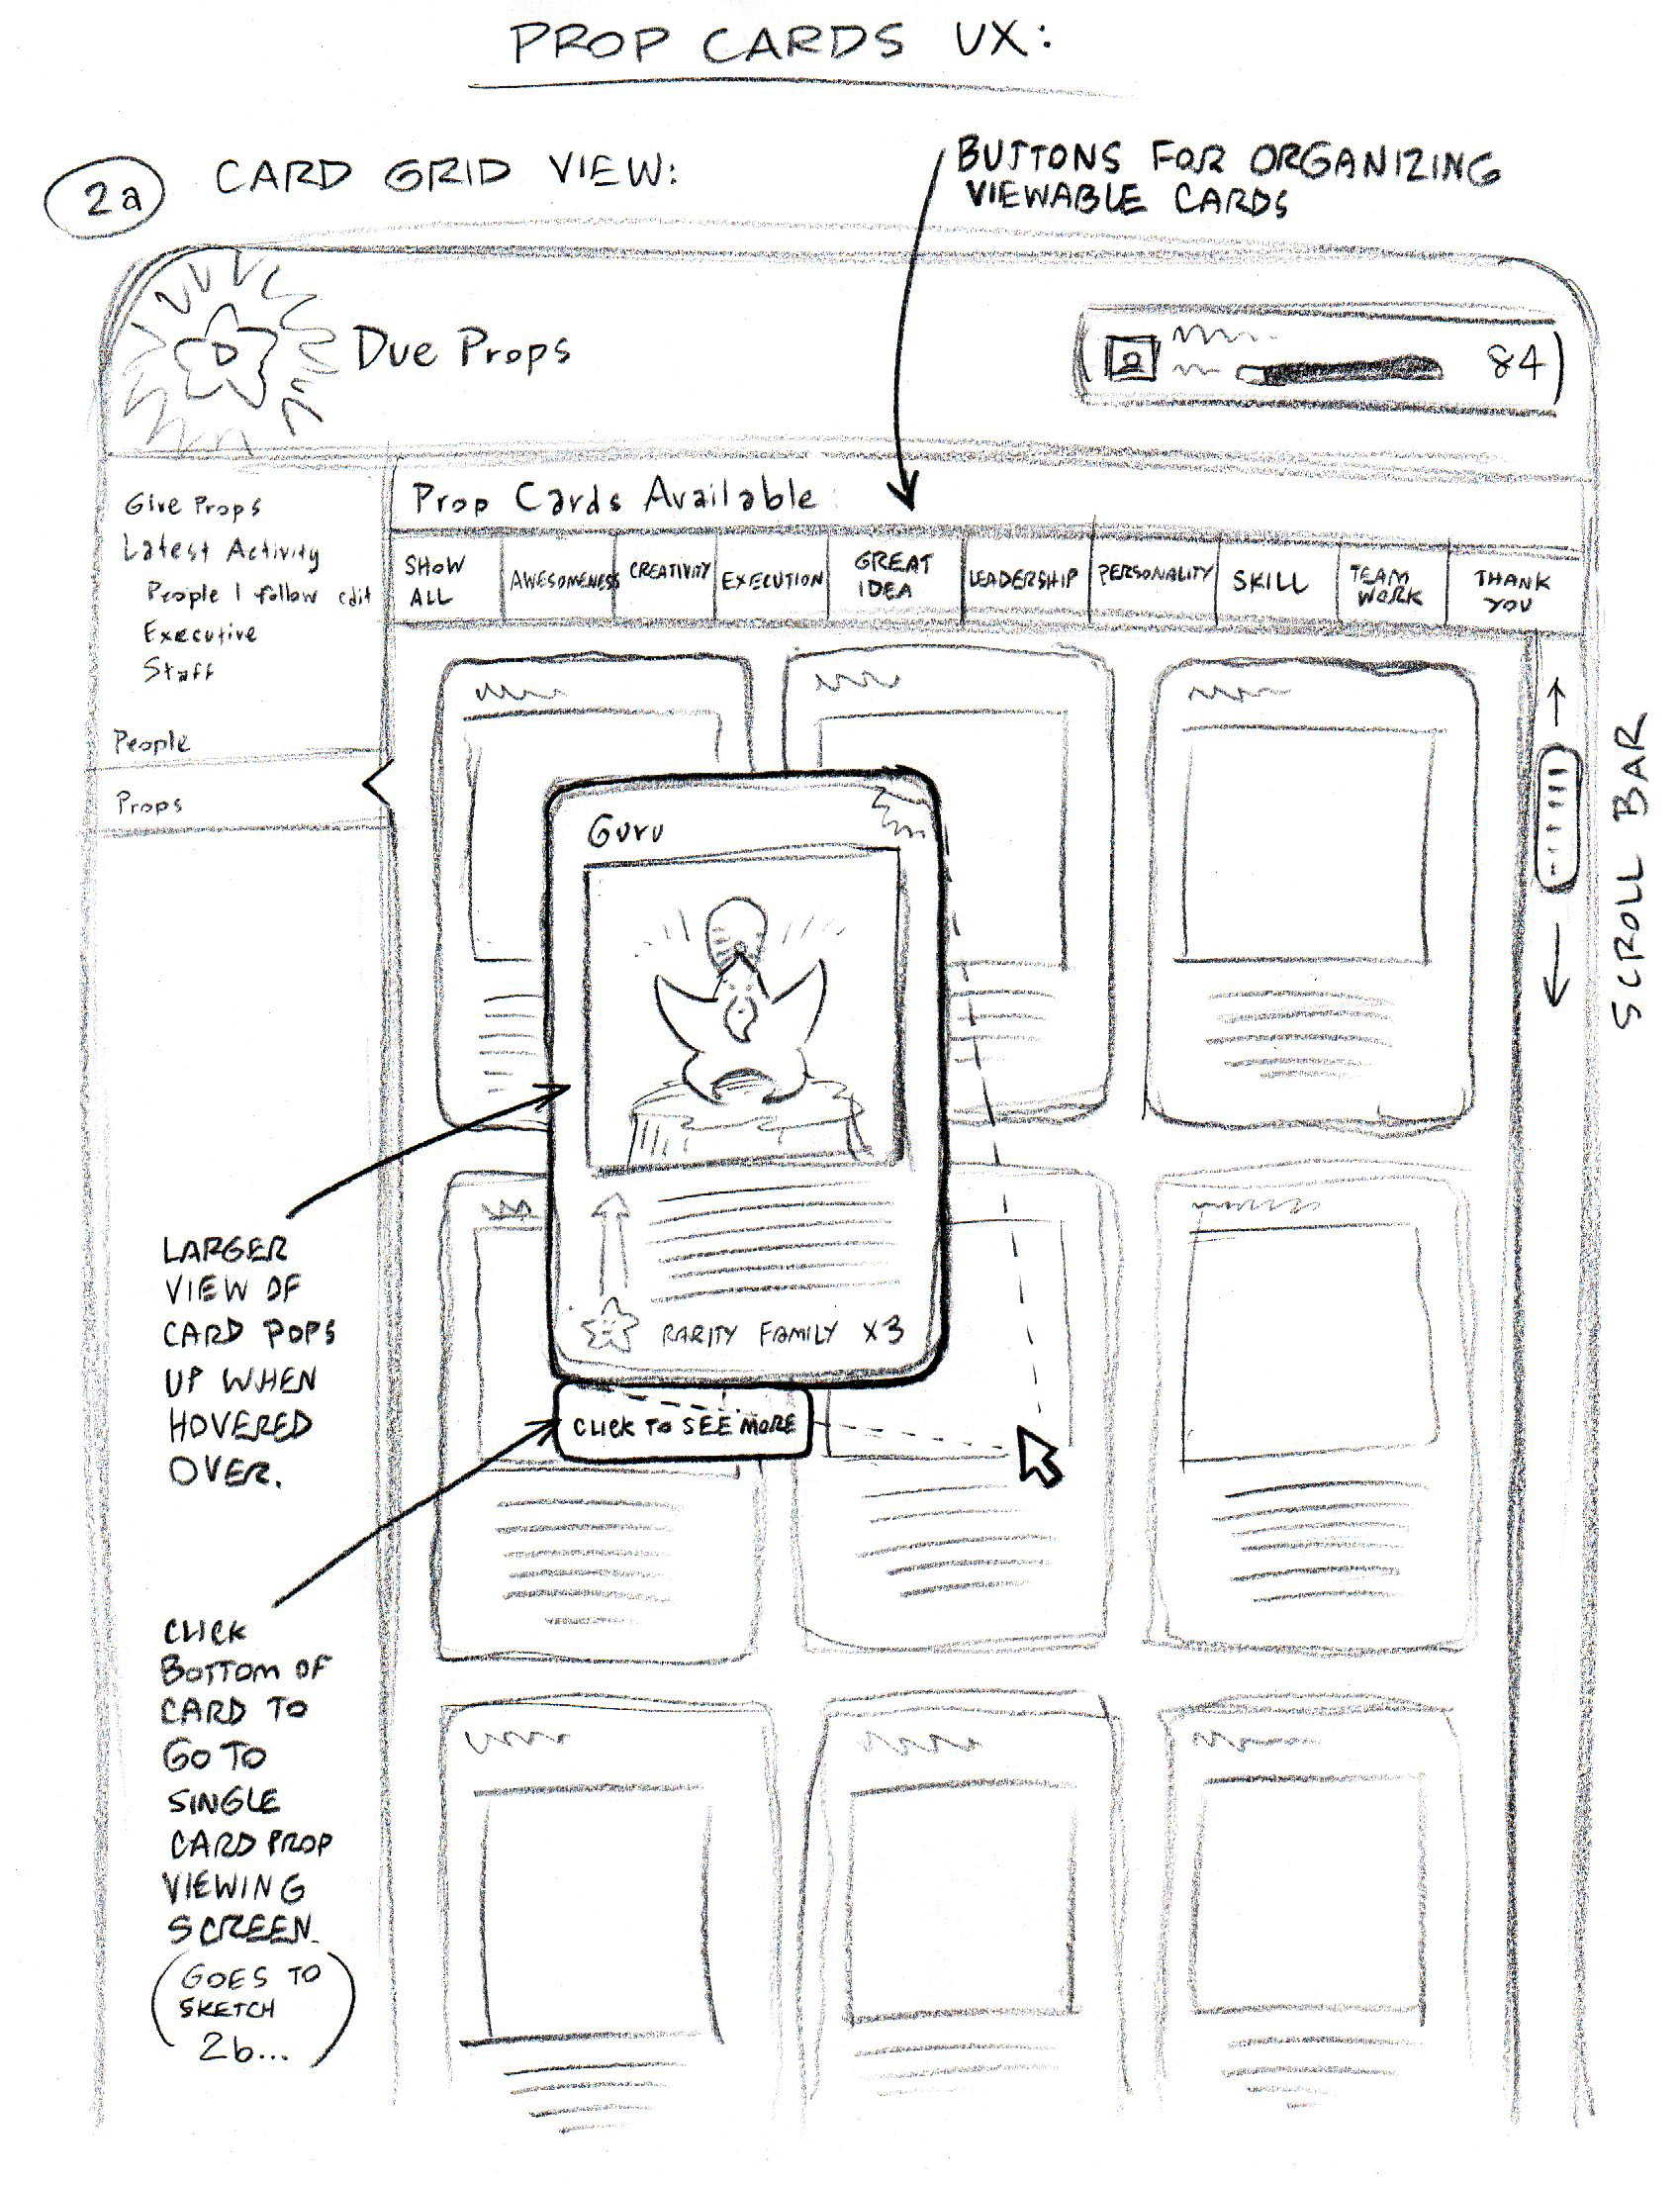 PROP CARDS UX:
2a
CARD GRID VIEW:
BUTTONS FOR ORGANIZING
VIEWABLE CARDS
D
Due Props
84
Give Props
Latest Activity
People I follow edit
Executive
Staff
People
Props
Prop Cards Available:
SHOW
ALL
AWESOMENESS
CREATIVITY
EXECUTION
GREAT
IDEA
LEADERSHIP
PERSONALITY
SKILL
TEAM
WORK
THANK
YOU
SCROLL BAR
Guru
RARITY FAMILY X3
CLICK TO SEE MORE
LARGER
VIEW OF
CARD POPS
UP WHEN
HOVERED
OVER.
CLICK
BOTTOM OF
CARD TO
GO TO
SINGLE
CARD PROP
VIEWING
SCREEN.
(GOES TO
SKETCH
2b...)